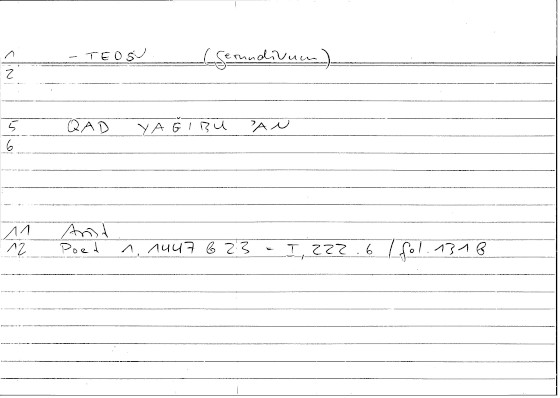 1 - TEOSV (Gerundivum)
2
5 QAD YAĞIBU 'AN
6
11 Arist
12 Poet 1.1447 B 23 - I, 222.6 / fol. 131 B